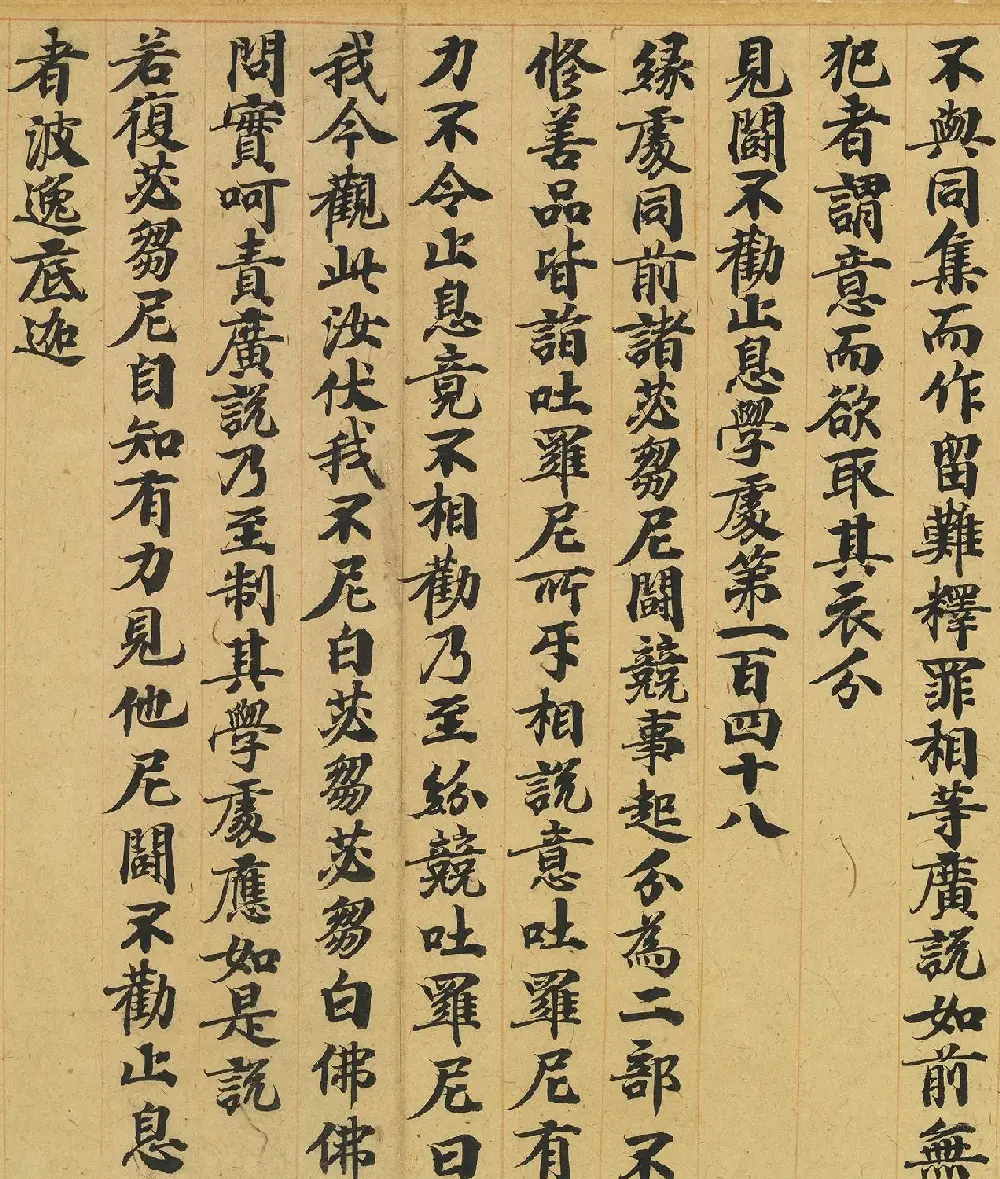 不與同集而作留難釋罪相等廣說如前無
犯者謂意而欲取其衣分
見鬪不勸止息學處第一百四十八
緣處同前諸苾芻尼鬪競事起分為二部不
修善品皆詣吐羅尼所乎相說意吐羅尼有
力不令止息竟不相勸乃至紛競吐羅尼曰
我今觀此汝伏我不尼白苾芻苾芻白佛佛
問實呵責廣說乃至制其學處應如是說
若復苾芻尼自知有力見他尼鬪不勸止息
者波逸底迦